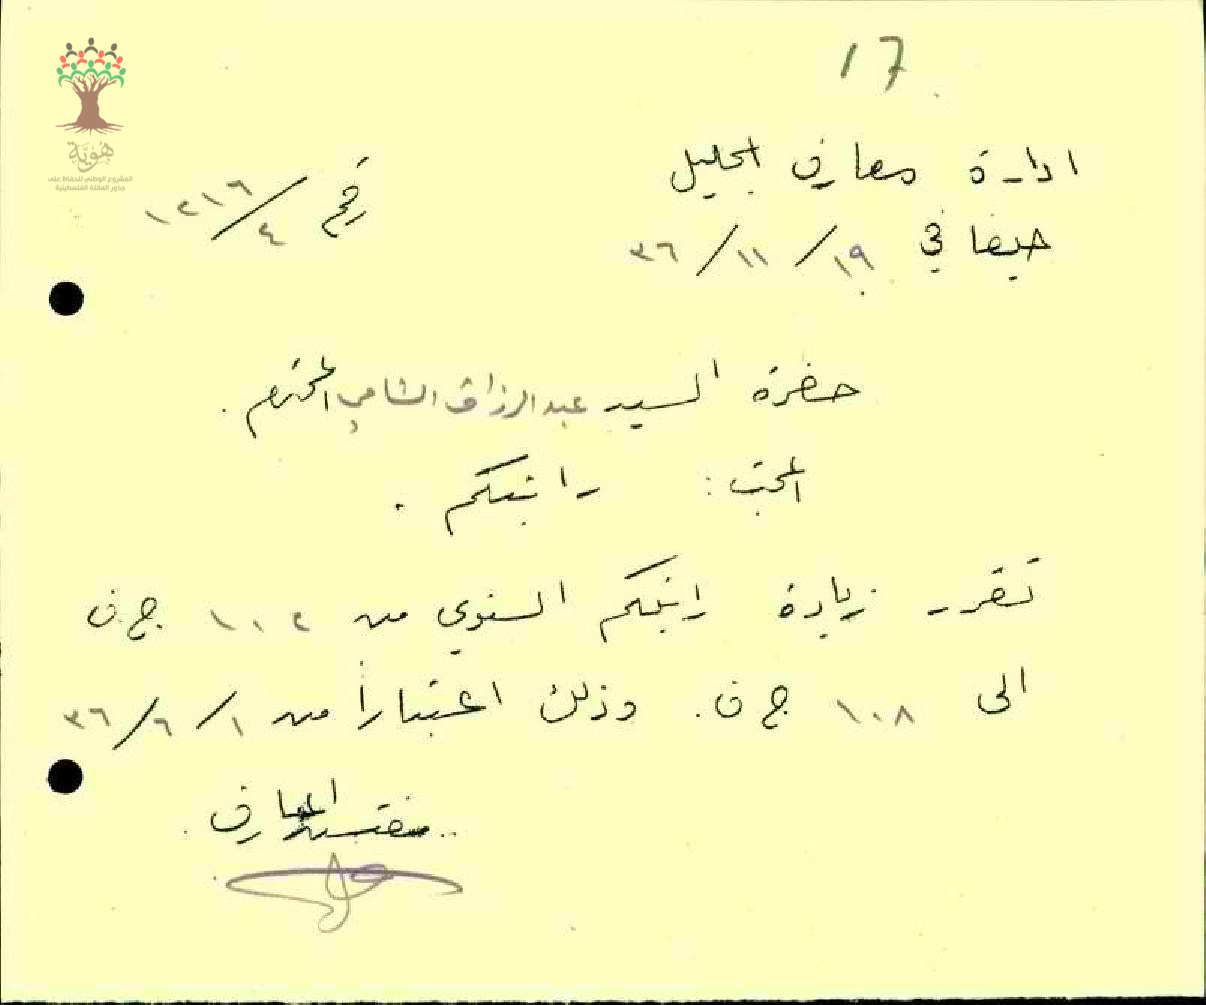 17
هُوِيَّة
المشروع الوطني للحفاظ على
جذور العائلة الفلسطينية
ادارة معارف الجليل
رقم ٤/١٢١٦
حيفا في ١٩/١١/٣٦
حضرة السيد عبد الرزاق الشامي المحترم .
المبحث : راتبكم .
تقرر زيادة راتبكم السنوي من ١٠٢ ج.ف
الى ١٠٨ ج ف . وذلك اعتباراً من ١/٦/٣٦
مفتش المعارف